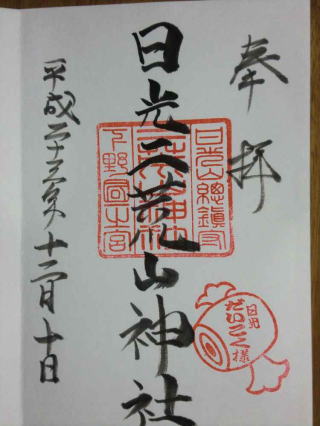 奉拝
日光二荒山神社
日光山總鎮守
二荒山神社
下野国一宮
日光
だいこく様
平成二十三年十二月十日